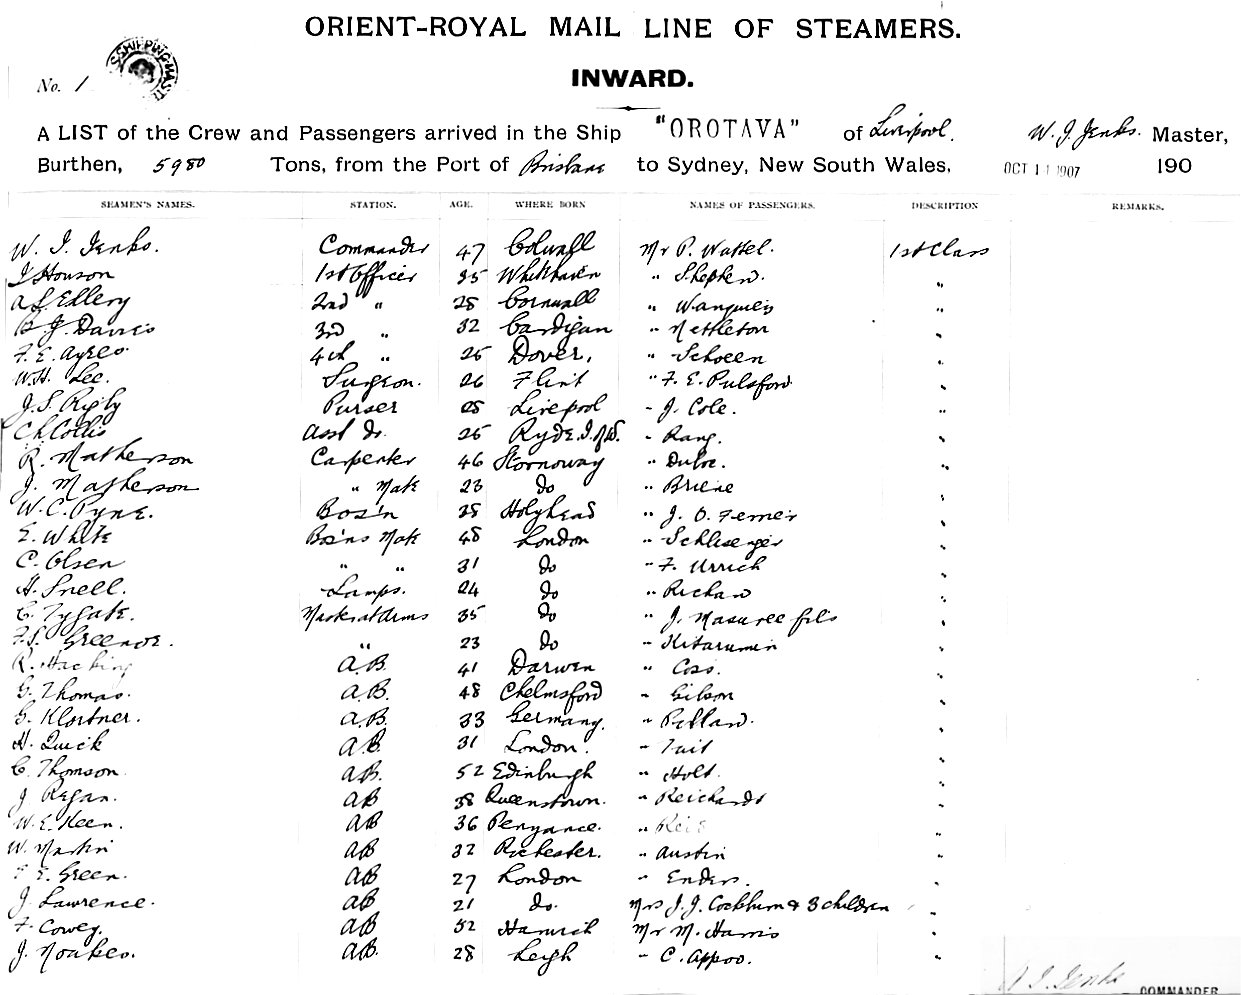 ORIENT-ROYAL MAIL LINE OF STEAMERS.
No. 1
INWARD.
A LIST of the Crew and Passengers arrived in the Ship "OROTAVA" of Liverpool. W. J. Jenks. Master,
Burthen, 5980 Tons, from the Port of Brisbane to Sydney, New South Wales, OCT 11 1907 190
SEAMEN'S NAMES. STATION. AGE. WHERE BORN NAMES OF PASSENGERS. DESCRIPTION REMARKS.
W. J. Jenks. Commander 47 Colwall Mr P. Wattel. 1st Class
J Houson 1st Officer 35 Whitehaven " Shepherd. "
A L Ellery 2nd " 28 Cornwall " "
B. J. Davies 3rd " 32 Cardigan " Nettleton "
F. E. Ayres. 4th " 25 Dover. " Schoeen "
W. H. Lee. Surgeon. 26 Flint " F. E. Pulsford. "
J. S. Rigby Purser 25 Liverpool " J. Cole. "
Asst do. 25 Ryde. I. of W. " Rang. "
R. Matherson Carpenter 46 Stornoway " "
J. Matherson " Mate 23 do " "
W. C. Pyne. Bos'n 38 Holyhead " J. O. "
E. White Bos'ns Mate 48 London " "
C. Olsen " " 31 do " F. "
H. Snell. Lamps. 24 do " "
C. Tygate. Master at Arms 35 do " J. Masuree fils "
F. S. " 23 do " "
R. Hacking A.B. 41 Darwen " Coss. "
G. Thomas. A.B. 48 Chelmsford " Gibson "
G. Klostner. A.B. 33 Germany. " "
H. Quick A.B. 31 London. " Tait "
C. Thomson. A.B. 52 Edinburgh " Holt. "
J. Regan. A.B 38 Queenstown. " Reichardt "
W. E. Keen. A.B 36 Penzance. " "
W. Martin A.B 32 Rochester. " Austin "
F. E. Green. A.B 27 London " Enders. "
J. Lawrence. A.B 21 do. Mrs J. J. Cockburn & 3 children "
F. Cowey. A.B 52 Harwich Mr M. Harris "
J. Noakes. A.B. 28 Leigh " C. Appoo. "
W. J. Jenks COMMANDER